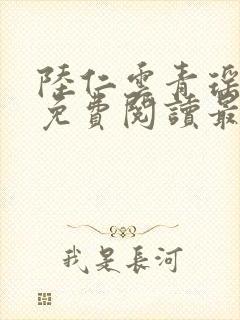 陸仁雲青瑶
免費閱讀最
我是長河